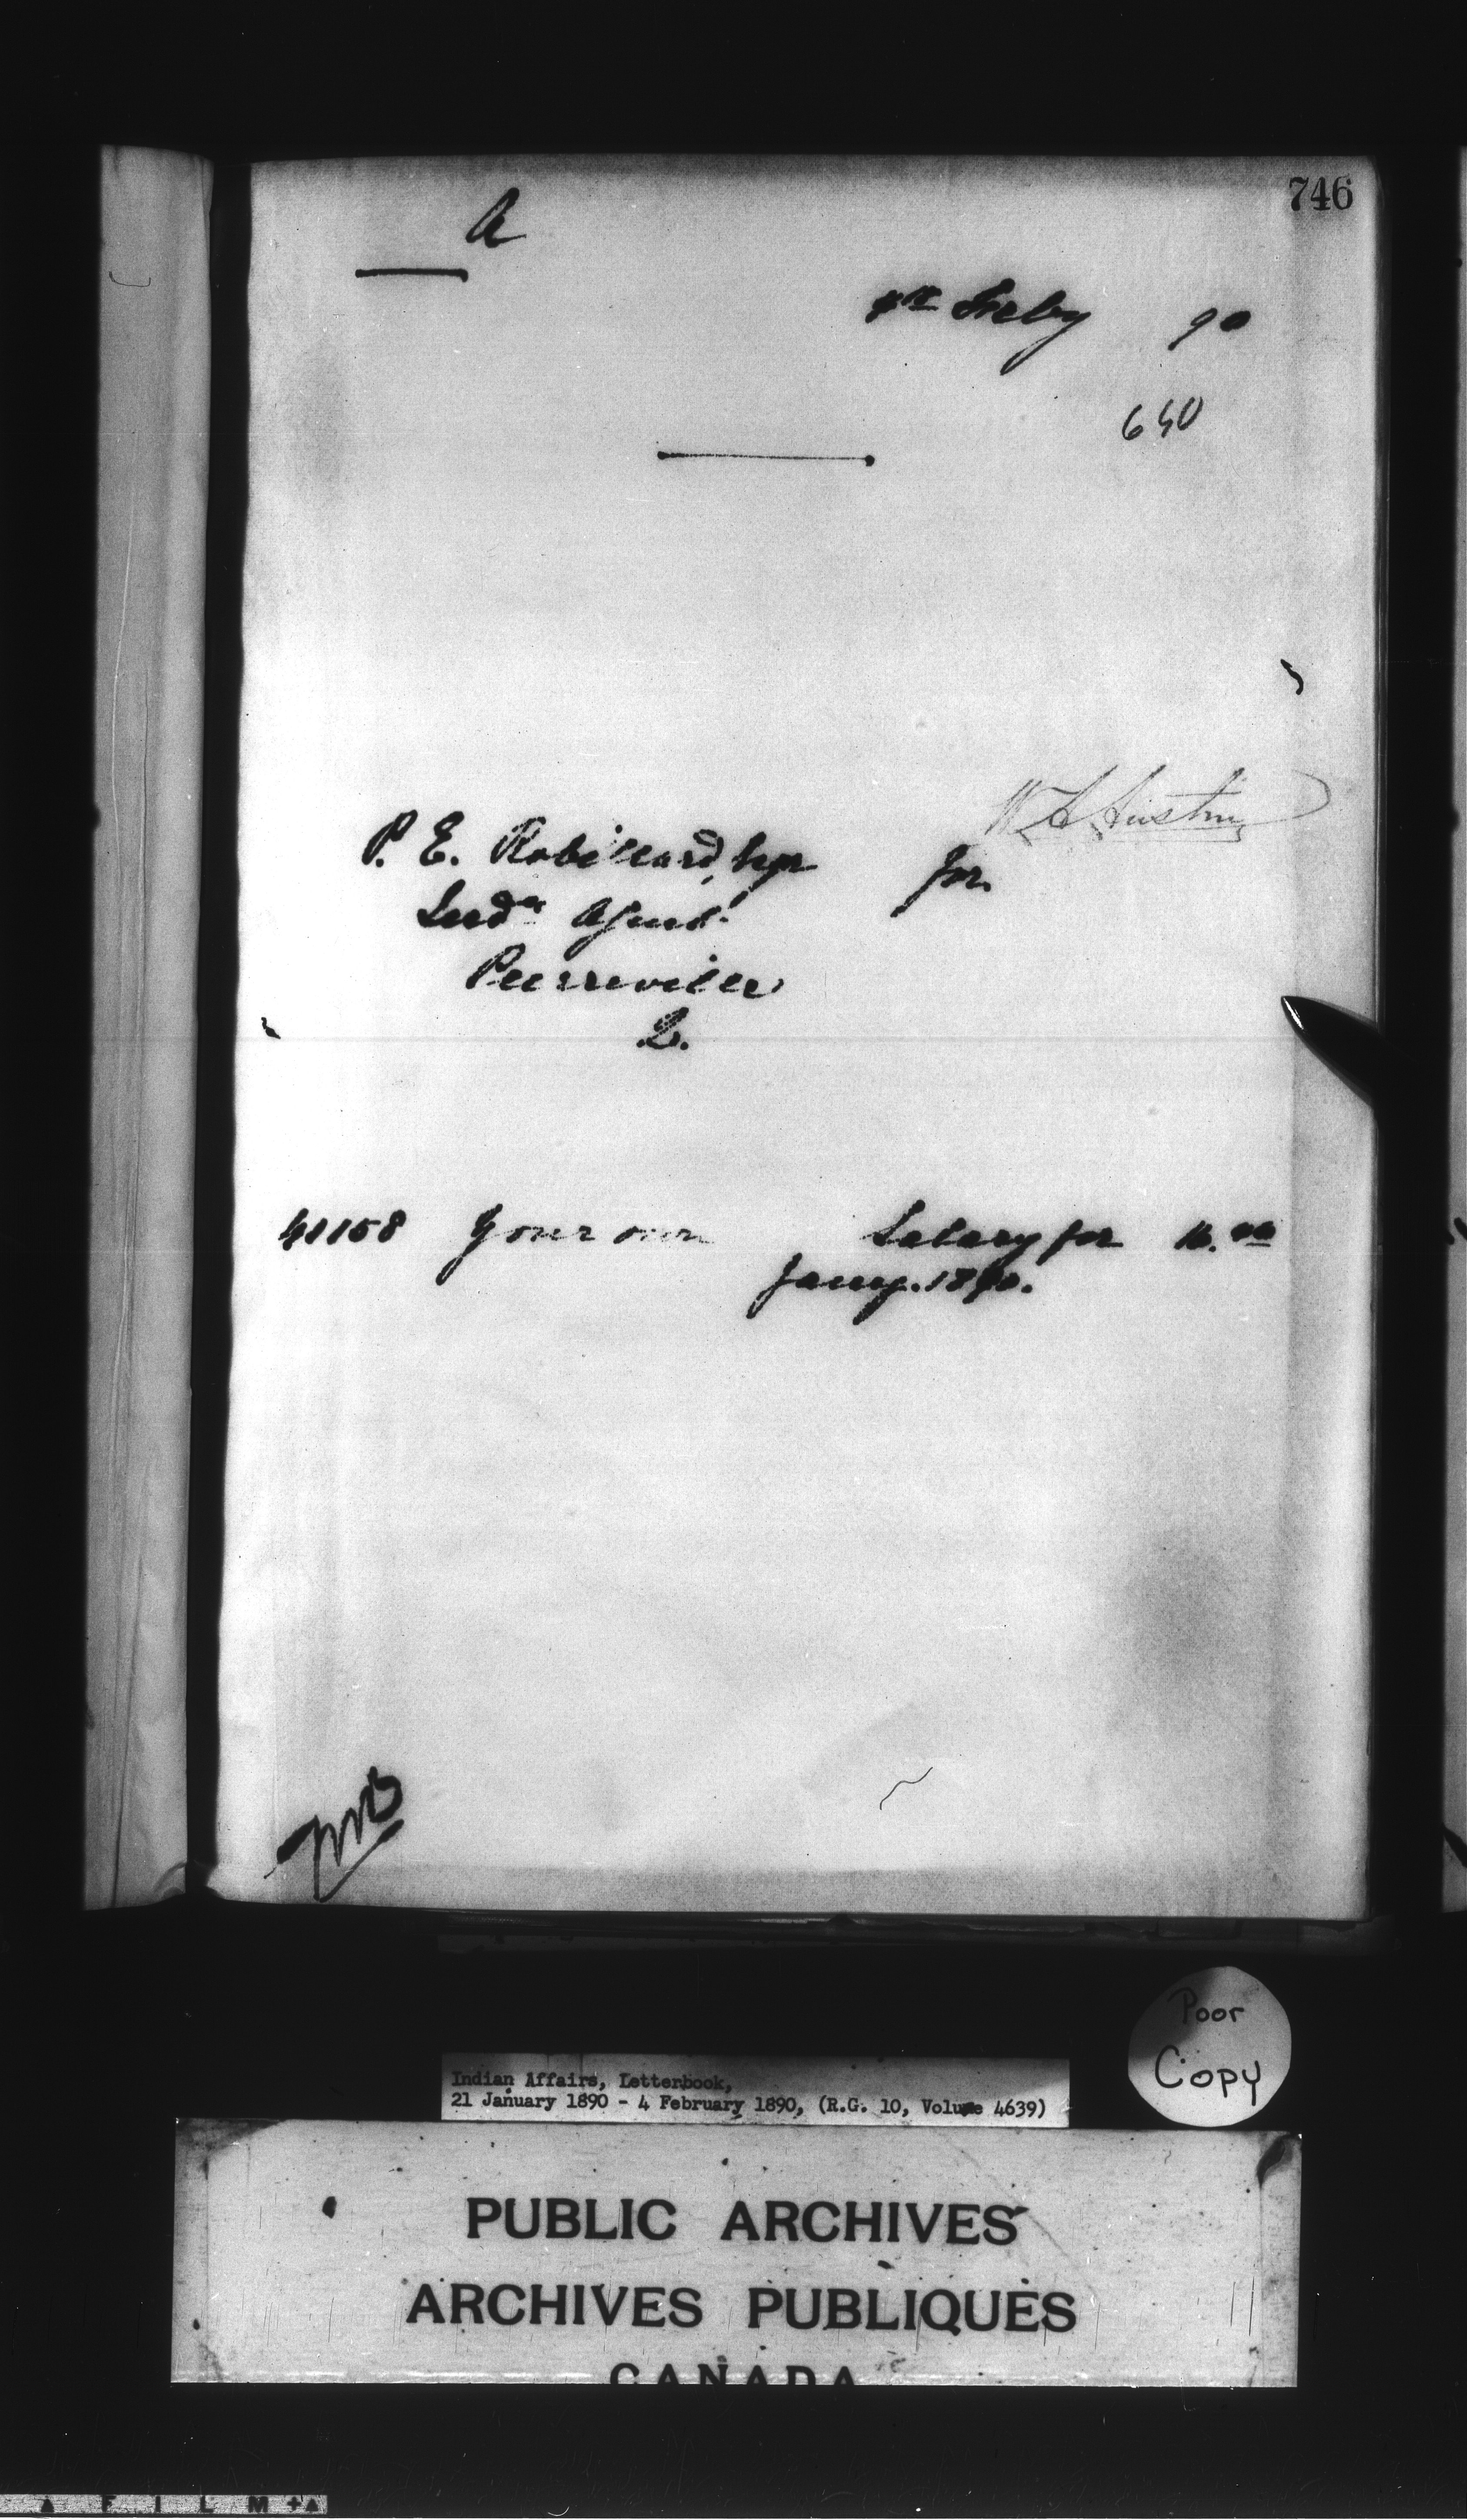 746
A
4th Feby 90
640
W A Austin
P. E. Robillard, Esqr for
Indn Agent
Pierreville
Q.
41158 Your own Salary for 16.00
Jany. 1890.
Poor
Copy
Indian Affairs, Letterbook,
21 January 1890 - 4 February 1890, (R.G. 10, Volume 4639)
PUBLIC ARCHIVES
ARCHIVES PUBLIQUES
CANADA